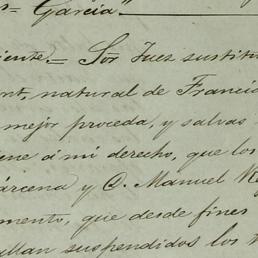 s= García".
iente.= Sor Juez sustitu
nt, natural de Francia
mejor proceda, y salvas
iene á mi derecho, que los
árcena y D. Manuel
mento, que desde fines
ultan suspendidos los